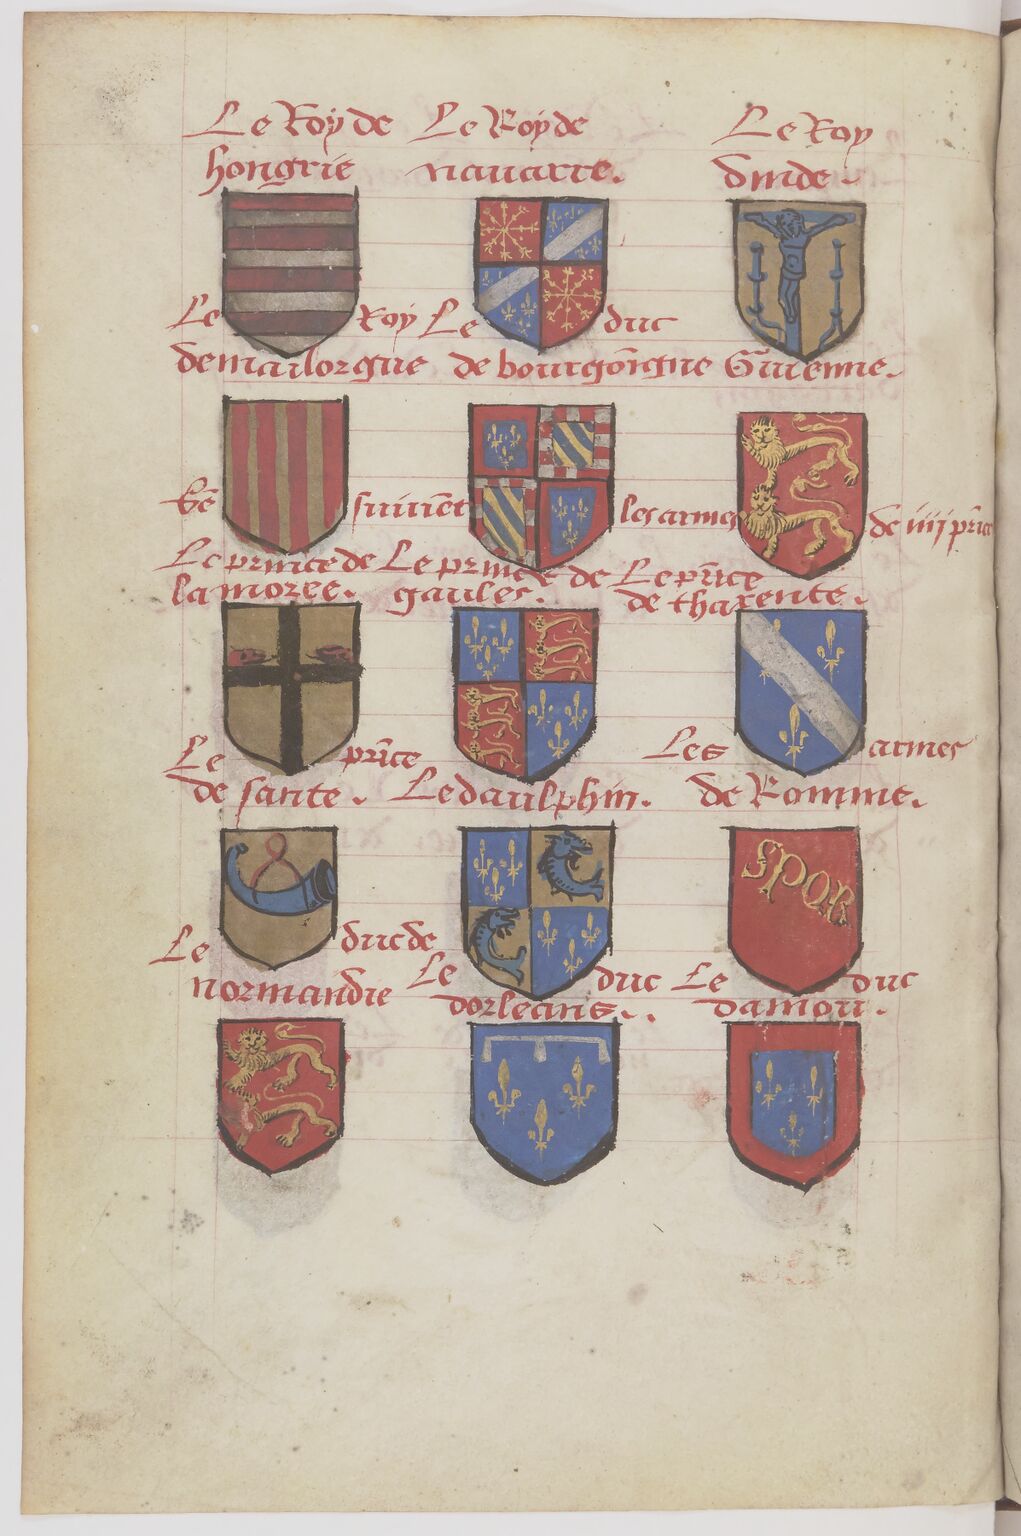 Le Roy de
hongrie
Le Roy de
nauarre.
Le Roy
dinde.
Le Roy
de mailorgue
Le duc
de bourgõngne
Guienne.
Sẽ suiuẽt les armes de iiij prĩce
Le prince de
la moree.
Le prince de
gaules.
Le prĩce
de tharente.
Le prĩce
de sante.
Le daulphin.
Les armes
de Romme.
SPQR
Le duc de
normandie
Le duc
dorleans..
Le duc
damou.